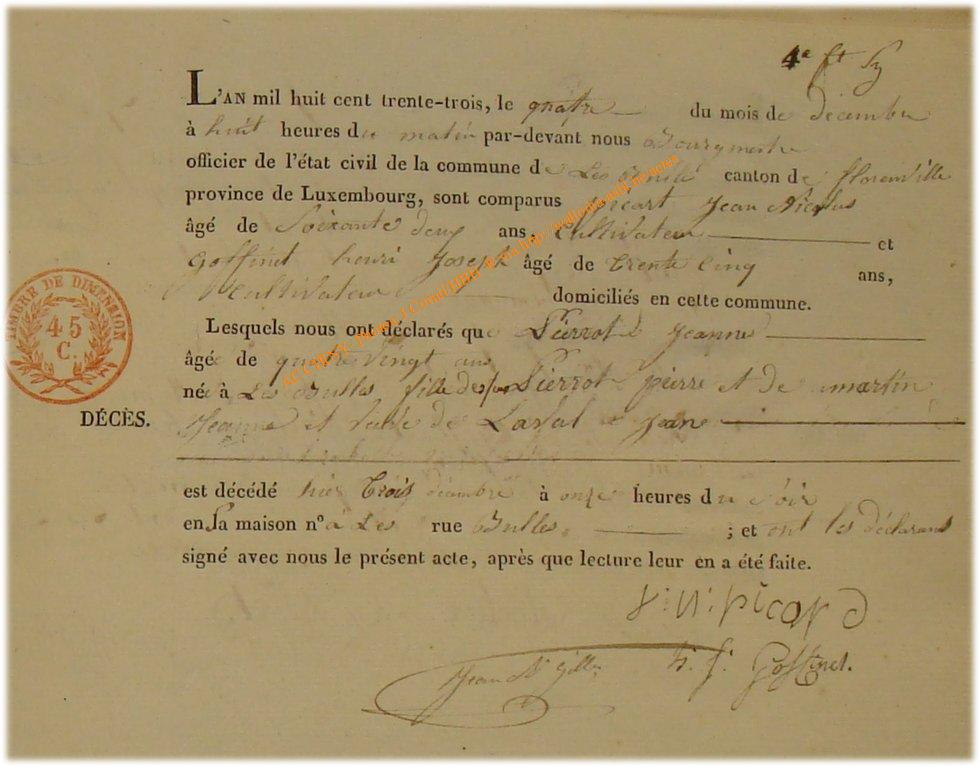 4e
L'AN mil huit cent trente-trois, le quatre du mois de décembre
à huit heures du matin par-devant nous Bourgmestre
officier de l'état civil de la commune de Les Bulles canton de florenville
province de Luxembourg, sont comparus picart Jean Nicolas
âgé de Soixante deux ans, Cultivateur et
Goffinet henri Joseph âgé de trente Cinq ans,
Cultivateur domiciliés en cette commune.
Lesquels nous ont déclarés que Pierrot Jeanne
âgée de quatre Vingt ans
née à Les Bulles fille de Pierrot pierre et de martin
Jeanne et de Laval Jean
est décédé hier Trois décembre à onze heures du soir
en sa maison n° à Les rue Bulles ; et ont les déclarans
signé avec nous le présent acte, après que lecture leur en a été faite.
J: N: picard
Jean N Gilles
h. j. Goffinet.
TIMBRE DE DIMENSION
45
C.
DÉCÈS.